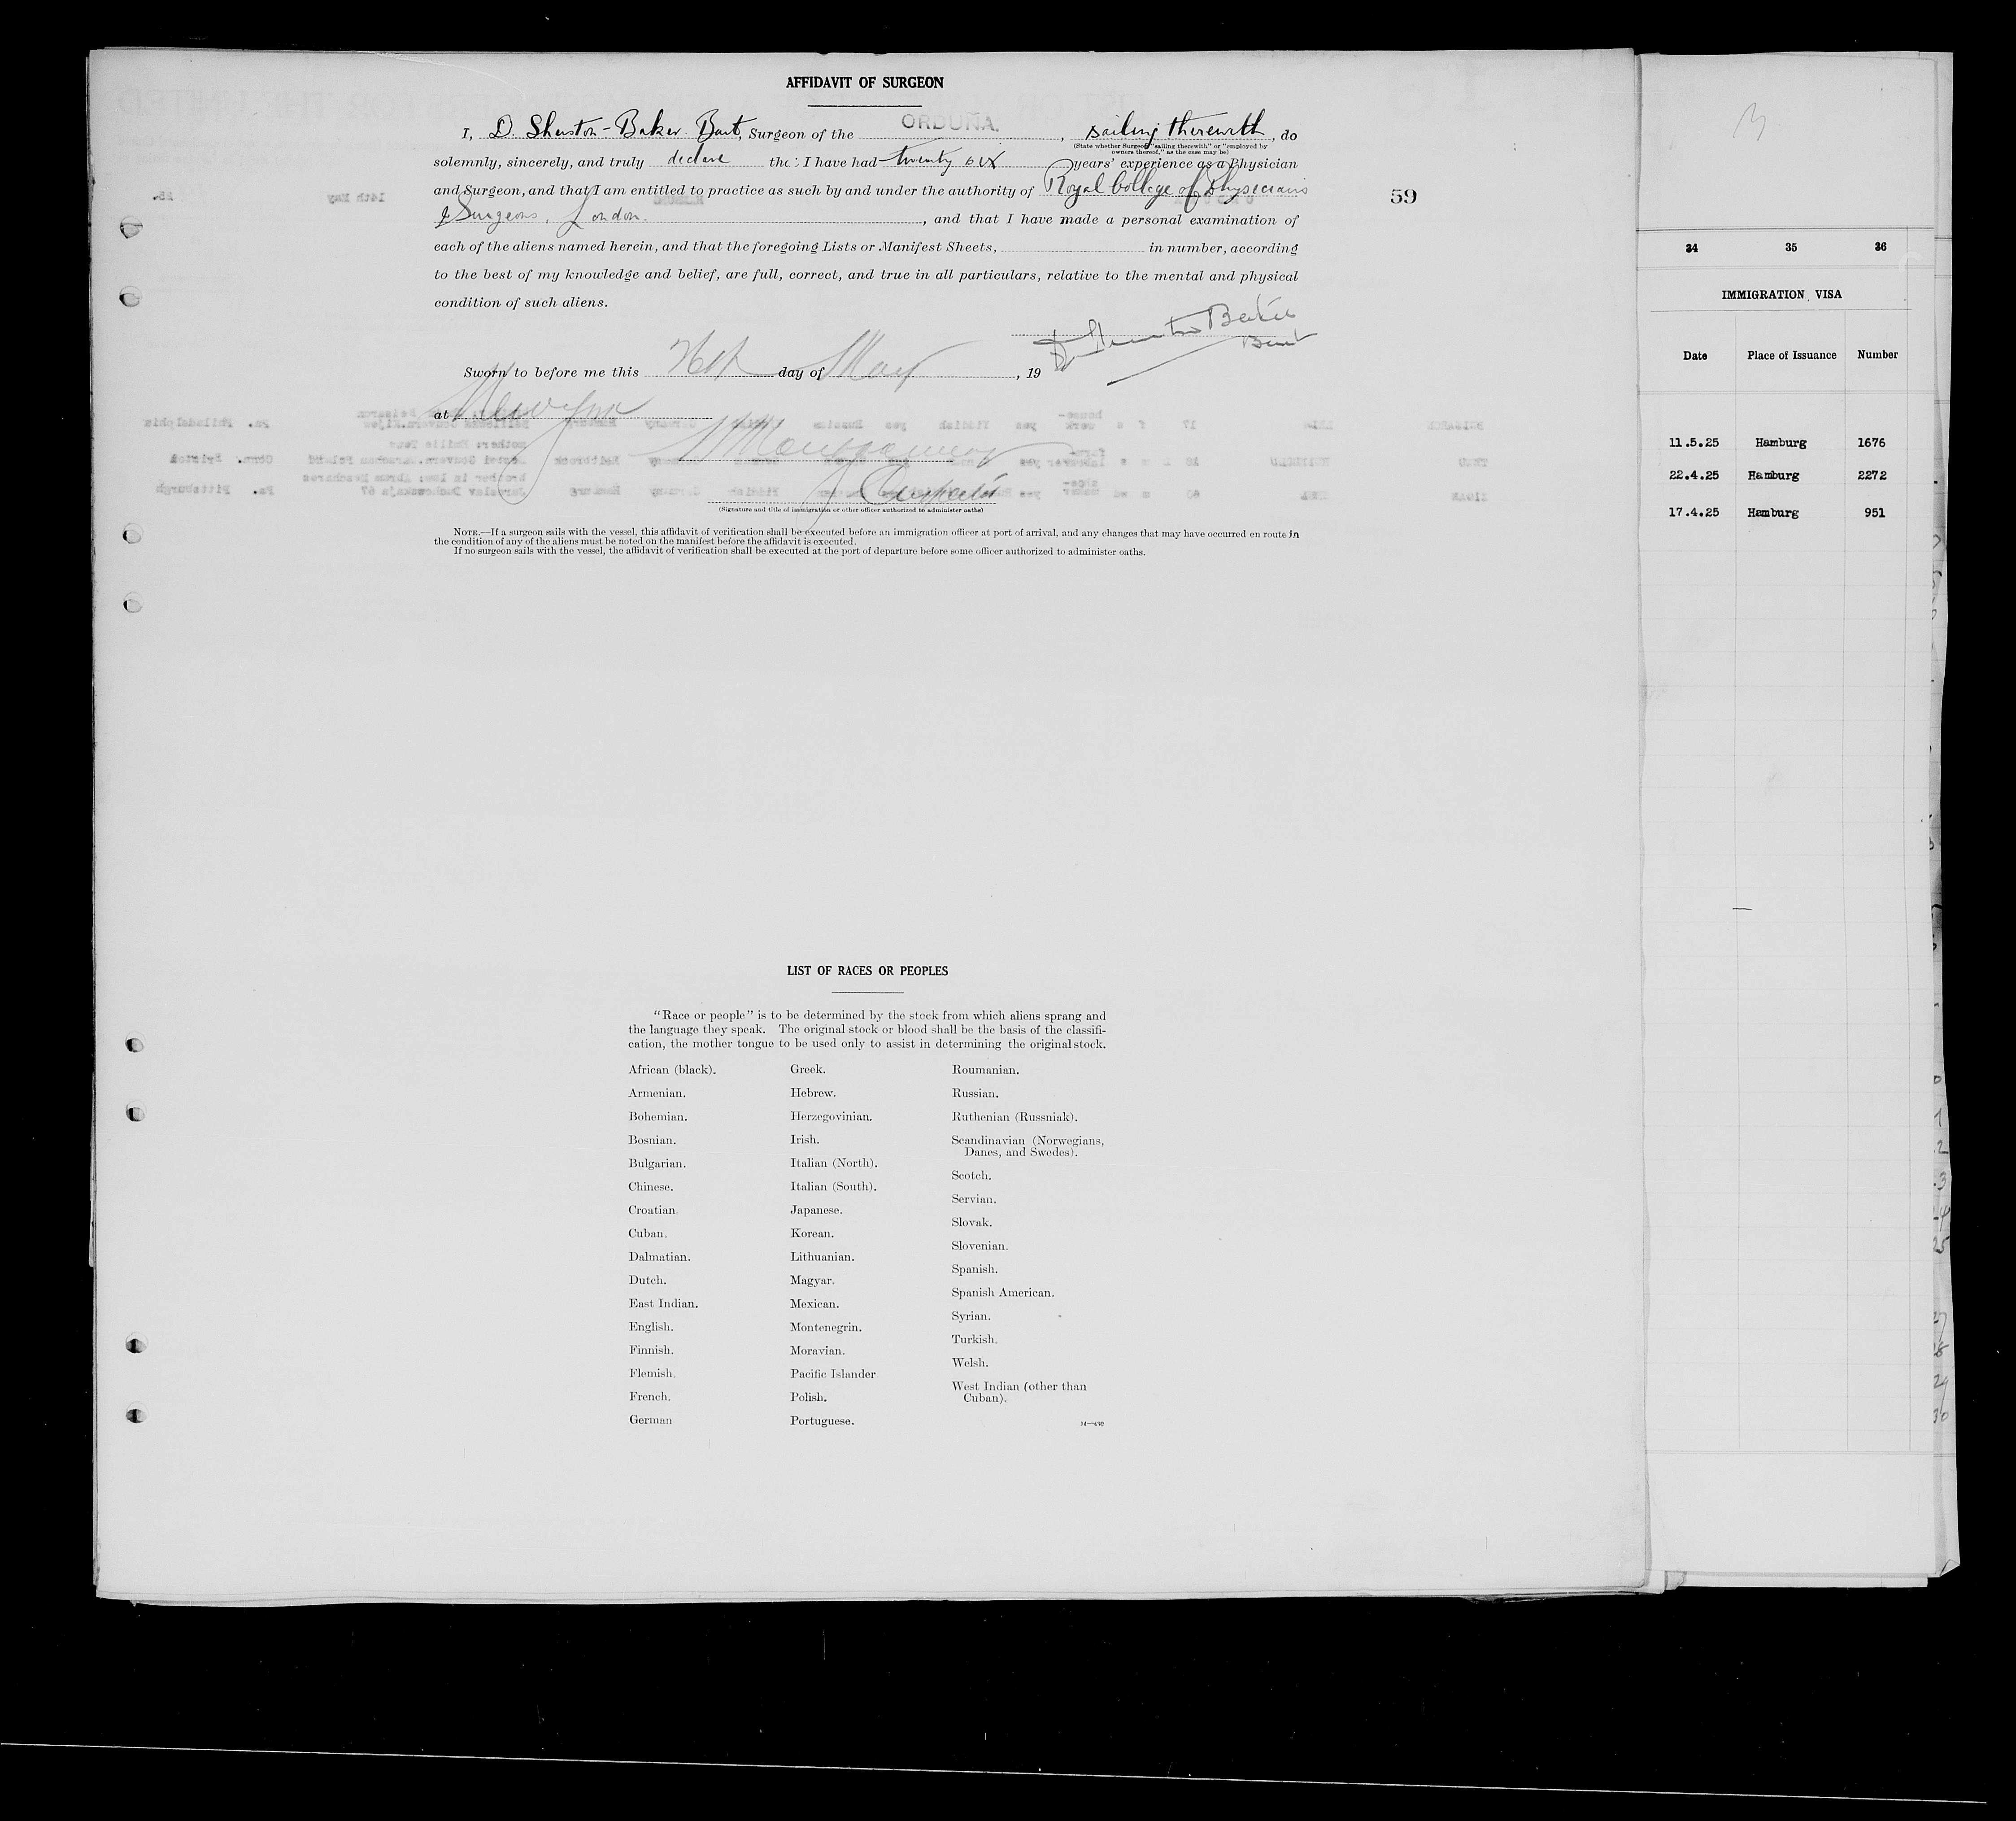 AFFIDAVIT OF SURGEON
I, D. Sherston-Baker Bart, Surgeon of the ORDUÑA, sailing therewith, do
(State whether Surgeon "sailing therewith" or "employed by
owners thereof," as the case may be)
solemnly, sincerely, and truly declare tha: I have had twenty six years' experience as a Physician
and Surgeon, and that I am entitled to practice as such by and under the authority of Royal College of Physicians
& Surgeons, London. , and that I have made a personal examination of
each of the aliens named herein, and that the foregoing Lists or Manifest Sheets, in number, according
to the best of my knowledge and belief, are full, correct, and true in all particulars, relative to the mental and physical
condition of such aliens.
Baker
Bart
Sworn to before me this 26th day of May, 19
at New York
Montgomery
Inspector
(Signature and title of immigration or other officer authorized to administer oaths)
NOTE.—If a surgeon sails with the vessel, this affidavit of verification shall be executed before an immigration officer at port of arrival, and any changes that may have occurred en route in
the condition of any of the aliens must be noted on the manifest before the affidavit is executed.
If no surgeon sails with the vessel, the affidavit of verification shall be executed at the port of departure before some officer authorized to administer oaths.
59
LIST OF RACES OR PEOPLES
"Race or people" is to be determined by the stock from which aliens sprang and
the language they speak. The original stock or blood shall be the basis of the classifi-
cation, the mother tongue to be used only to assist in determining the original stock.
African (black).
Armenian.
Bohemian.
Bosnian.
Bulgarian.
Chinese.
Croatian.
Cuban.
Dalmatian.
Dutch.
East Indian.
English.
Finnish.
Flemish.
French.
German
Greek.
Hebrew.
Herzegovinian.
Irish.
Italian (North).
Italian (South).
Japanese.
Korean.
Lithuanian.
Magyar.
Mexican.
Montenegrin.
Moravian.
Pacific Islander
Polish.
Portuguese.
Roumanian.
Russian.
Ruthenian (Russniak).
Scandinavian (Norwegians,
Danes, and Swedes).
Scotch.
Servian.
Slovak.
Slovenian.
Spanish.
Spanish American.
Syrian.
Turkish.
Welsh.
West Indian (other than
Cuban).
34 35 36
IMMIGRATION VISA
Date Place of Issuance Number
11.5.25 Hamburg 1676
22.4.25 Hamburg 2272
17.4.25 Hamburg 951